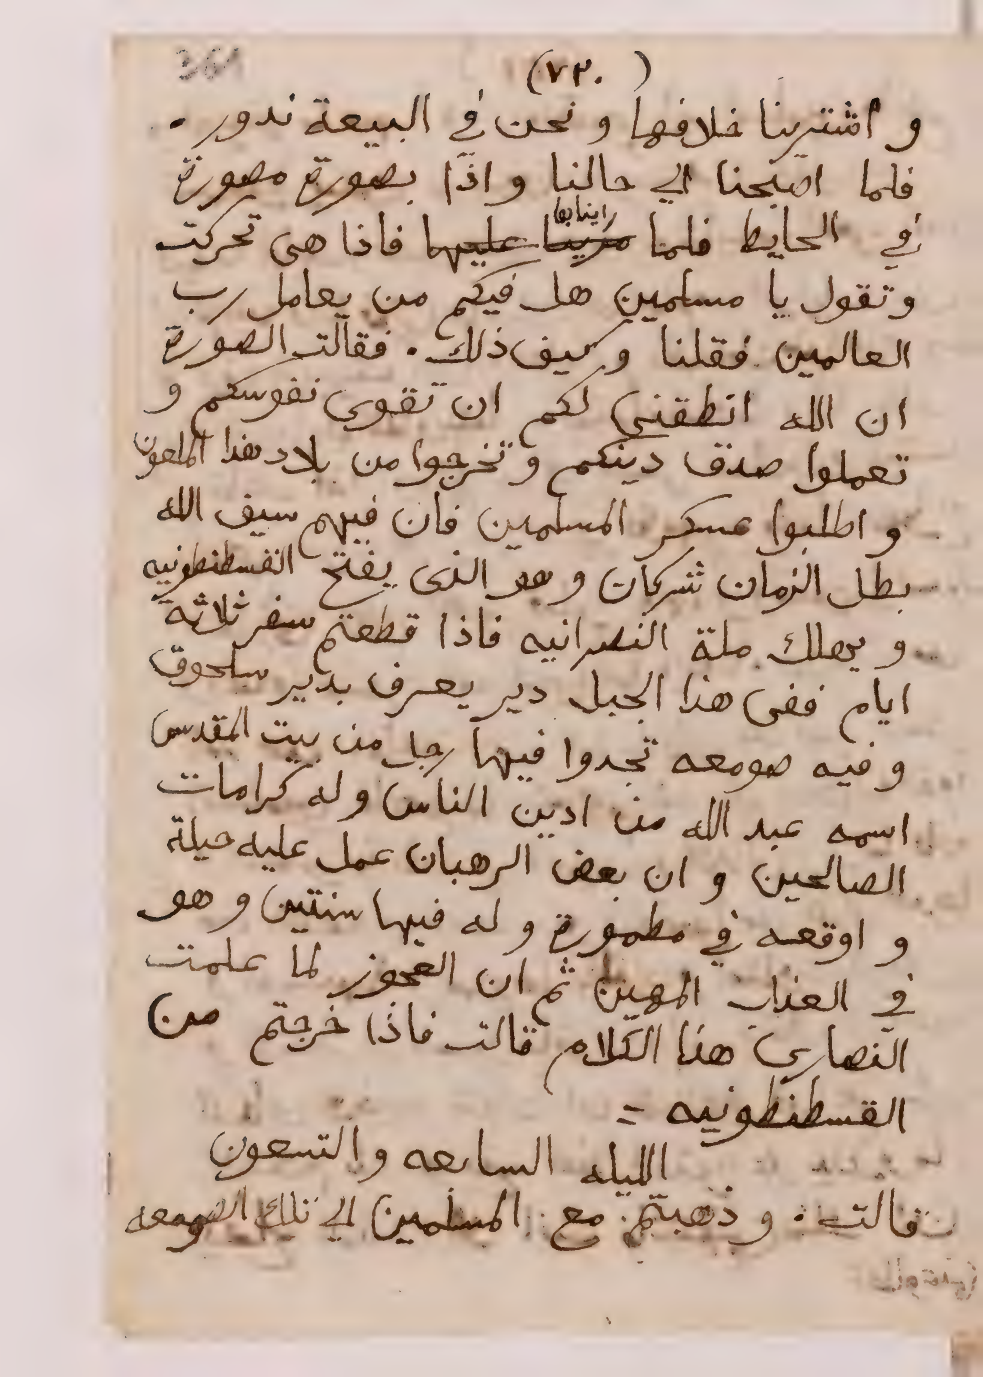 361
(٧٢٠)
و اشترينا خلافها و نحن في البيعة ندور .
فلما اصبحنا الي حالنا و اذا بصورة مصورة
في الحايط فلما مرينا عليها رايناها فاذا هى تحركت
و تقول يا مسلمين هل فيكم من يعامل رب
العالمين فقلنا و كيف ذلك . فقالت الصورة
ان الله انطقني لكم ان تقوى نفوسكم و
تعملوا صدق دينكم و تخرجوا من بلاد هذا الملعون
و اطلبوا عسكر المسلمين فان فيهم سيف الله
بطل الزمان شركان و هو الذى يفتح القسطنطونيه
و يهلك ملة النصرانيه فاذا قطعتم سفر ثلاثة
ايام ففى هذا الجبل دير يعرف بدير سلحوق
و فيه صومعه تجدوا فيها رجل من بيت المقدس
اسمه عبد الله من ادين الناس و له كرامات
الصالحين و ان بعض الرهبان عمل عليه حيلة
و اوقعه في مطمورة و له فيها سنتين و هو
في العذاب المهين ثم ان العجوز لما علمت
النصارى هذا الكلام قالت فاذا خرجتم من
القسطنطونيه =
الليله السابعه و التسعون
قالت . و ذهبتم مع المسلمين الي تلك الصومعه